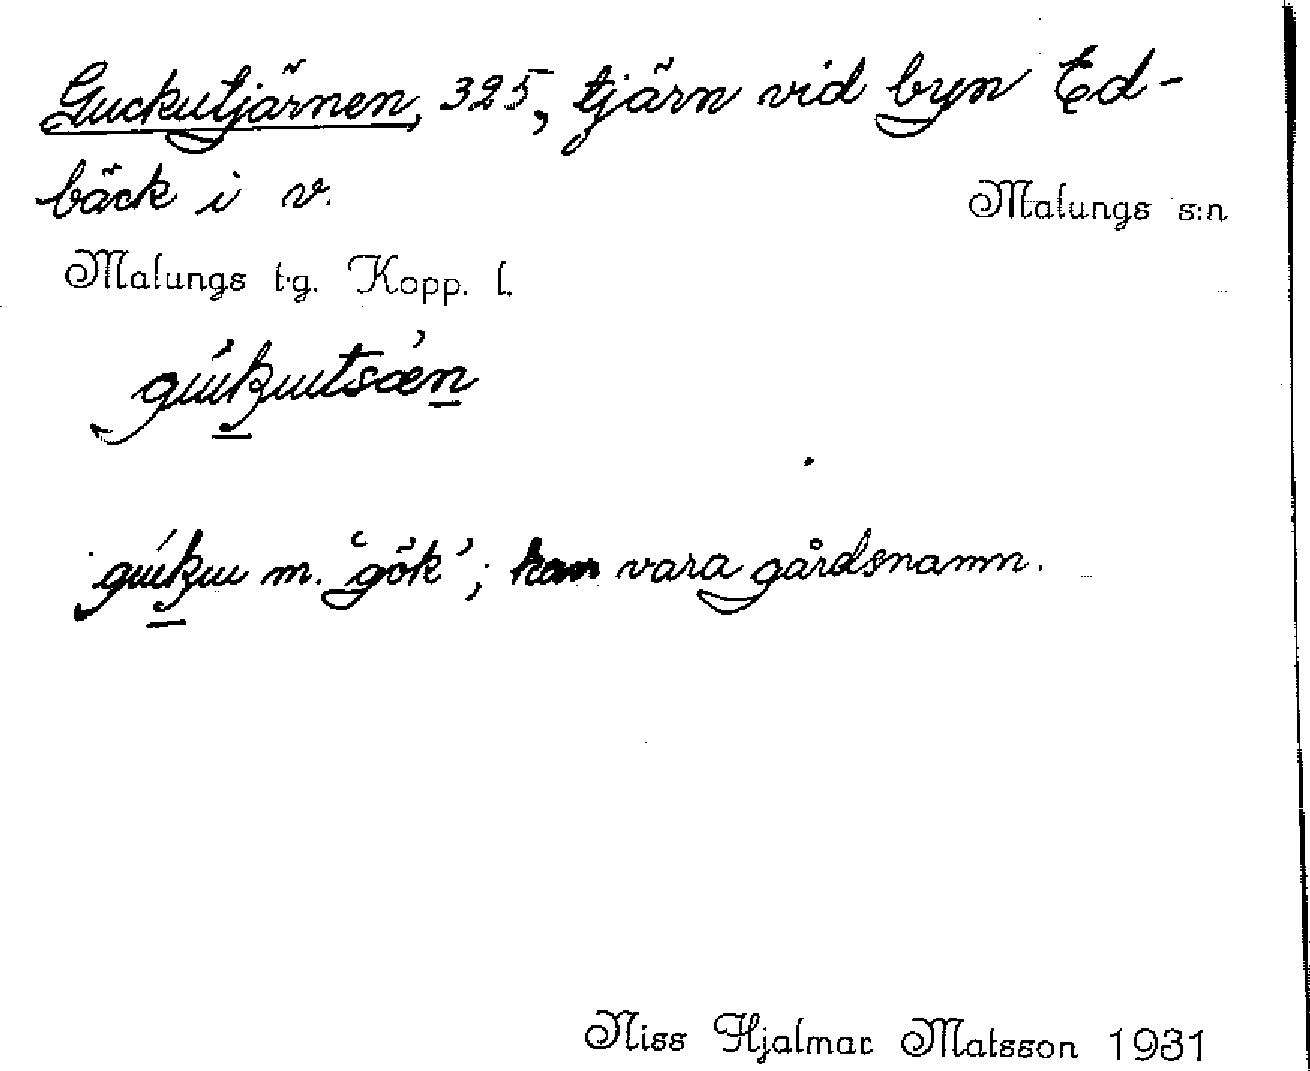 Guckutjärnen, 325, tjärn vid byn Ed-
bäck i v.
Malungs s:n
Malungs t.g. Kopp. l.
m. 'gök'; kan vara gårdsnamn.
Niss Hjalmar Matsson 1931